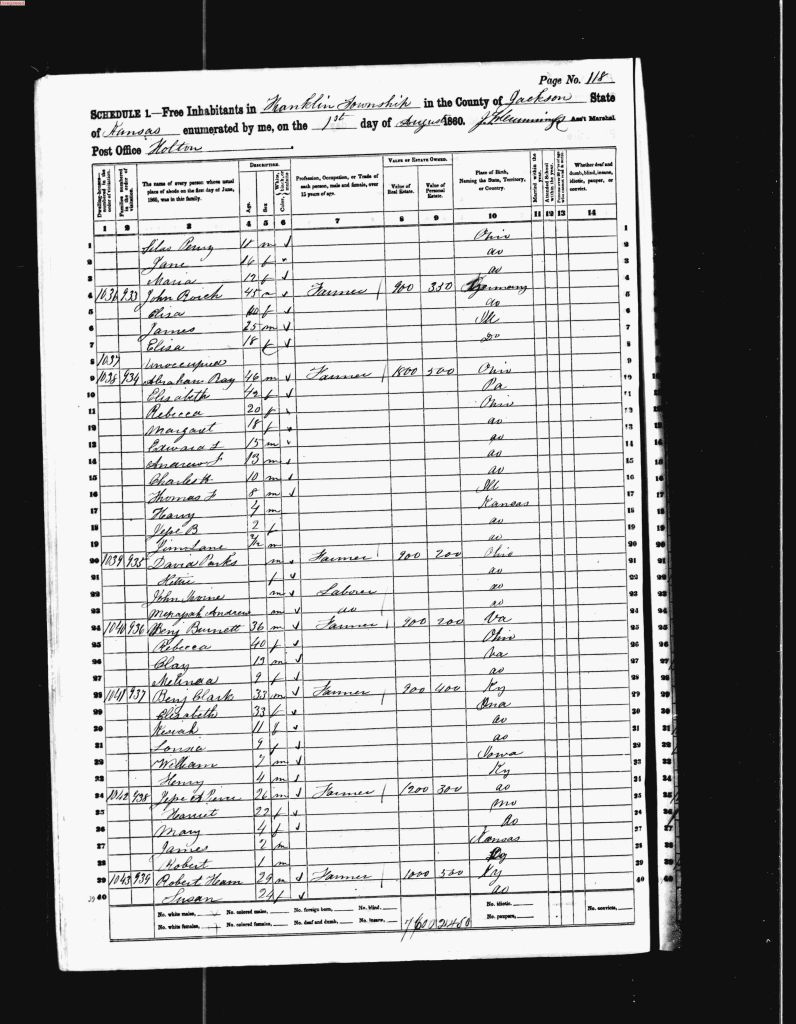 Page No. 118
SCHEDULE 1.—Free Inhabitants in Franklin Township in the County of Jackson State
of Kansas enumerated by me, on the 1st day of August 1860. Ass't Marshal
Post Office Holton
DESCRIPTION. VALUE OF ESTATE OWNED.
The name of every person whose usual place of abode on the first day of June, 1860, was in this family. Age. Sex Profession, Occupation, or Trade of each person, male and female, over 15 years of age. Value of Real Estate. Value of Personal Estate. Place of Birth, Naming the State, Territory, or Country. Married within the year. Whether deaf and dumb, blind, insane, idiotic, pauper, or convict.
1 2 3 4 5 6 7 8 9 10 11 12 13 14
1 Silas Perry 18 m Ohio
2 Jane 16 f do
3 Maria 12 f do
4 1036 933 John Roick 45 m Farmer 900 350 Germany
5 Elisa 40 f do
6 James 25 m Ill
7 Elisa 18 f do
8 1037 Unoccupied
9 1038 934 Abraham Ray 46 m Farmer 1800 500 Ohio
10 Elisabeth 42 f Pa
11 Rebecca 20 f Ohio
12 Margaret 18 f do
13 Edward F 15 m do
14 Andrew F 13 m do
15 Charles H 10 m do
16 Thomas F 8 m Ill
17 Harry 4 m Kansas
18 Jesse B 2 f do
19 m do
20 1039 935 David Parks m Farmer 900 200 Ohio
21 f do
22 John Irvine m Laborer do
23 Andrew m do do
24 1040 936 Benj Burnett 36 m Farmer 900 200 Va
25 Rebecca 40 f Ohio
26 Clay 13 m Va
27 Melinda 9 f do
28 1041 937 Benj Clark 33 m Farmer 900 400 Ky
29 Elisabeth 33 f Ina
30 Kesiah 11 f do
31 Louisa 9 f do
32 William 7 m Iowa
33 Henry 4 m Ky
34 1042 938 26 m Farmer 1200 300 do
35 Harriet 22 f Mo
36 Mary 4 f do
37 James 2 m Kansas
38 Robert 1 m
39 1043 939 Robert Ham 29 m Farmer 1000 500 Ky
40 Susan 24 f do
No. white males, No. colored males, No. foreign born, No. blind, No. idiotic, No. convicts,
No. white females, No. colored females, No. deaf and dumb, No. insane, 7600 2450 No. paupers,